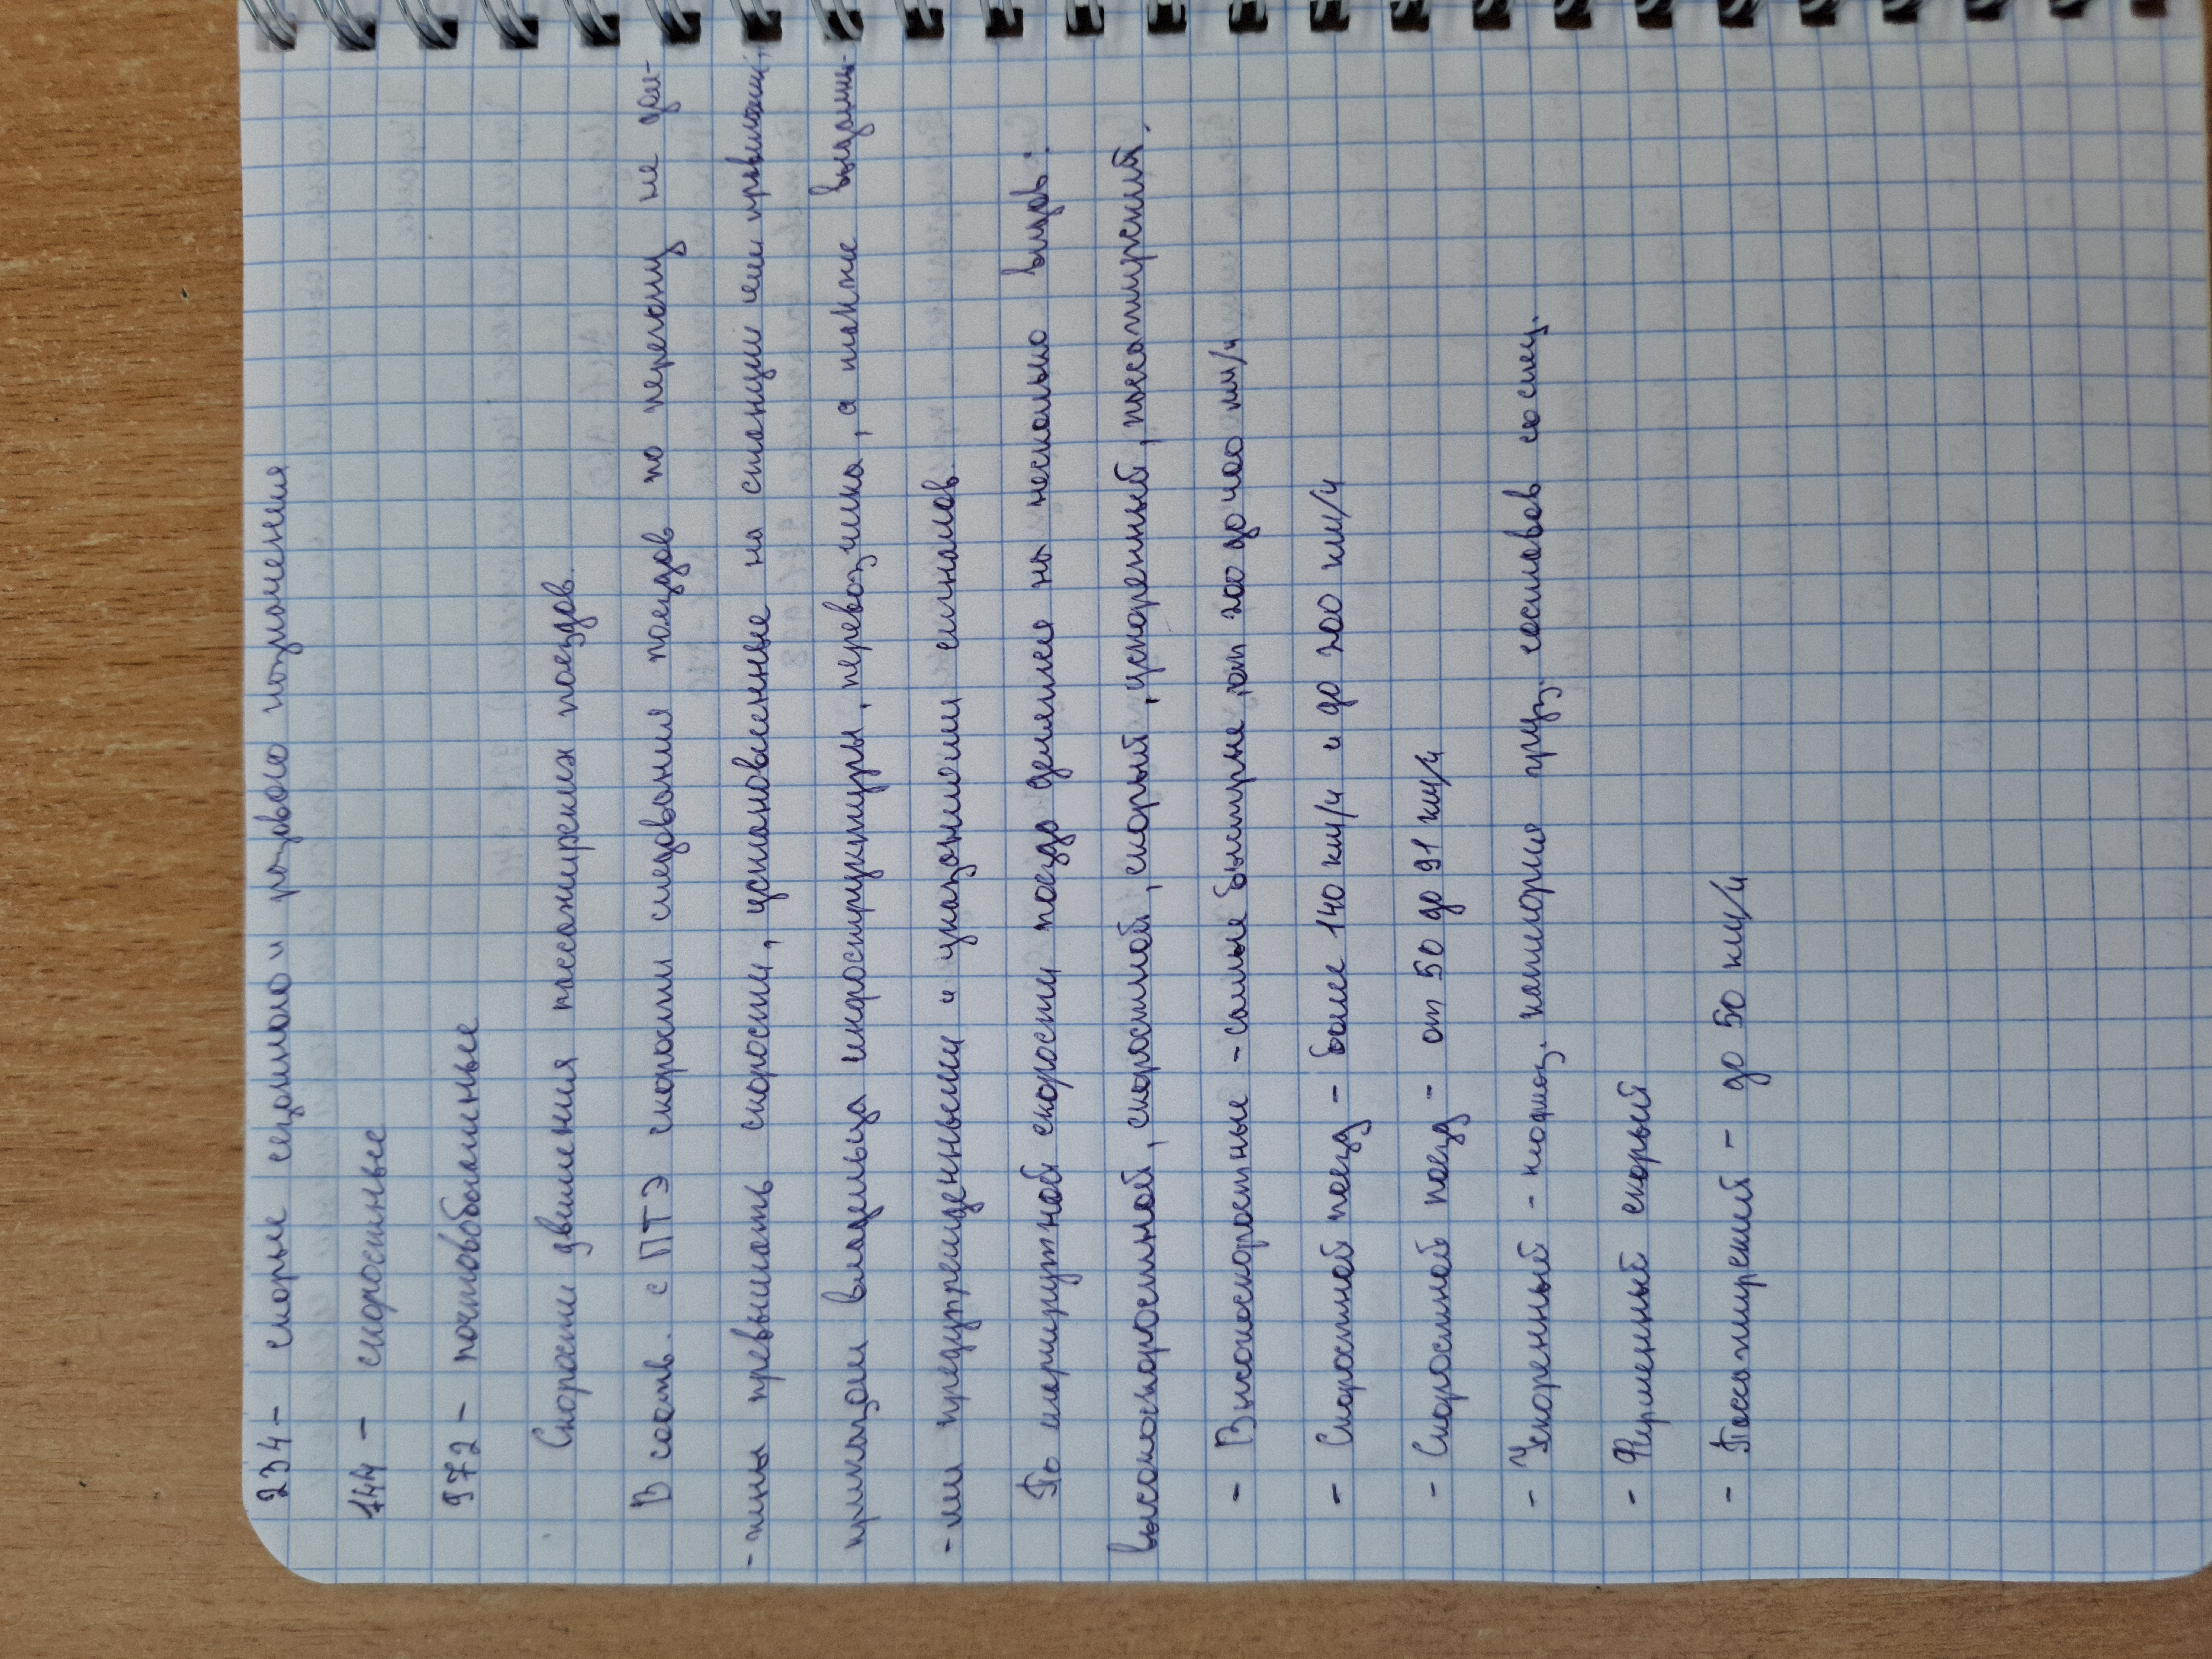 234 - скорые сезонного и разового назначения
744 - скоростные
972 - почтовобагажные
Скорости движения пассажирских поездов.
В соотв. с ПТЭ скорости следования поездов по перегону не дол-
-жны превышать скорости, установленные на станции или
приказом владельца инфраструктуры, перевозчика, а также выданны-
-ми предупреждениями и указаниями сигналов.
По маршрутной скорости поезда делятся на несколько видов:
высокоскоростной, скоростной, скорый, ускоренный, пассажирский.
- Высокоскоростные - самые быстрые, от 200 до 400 км/ч
- Скоростной поезд - более 140 км/ч и до 200 км/ч
- Скоростной поезд - от 50 до 91 км/ч
- Ускоренный - груз. составов со спец.
- Фирменный скорый
- Пассажирский - до 50 км/ч